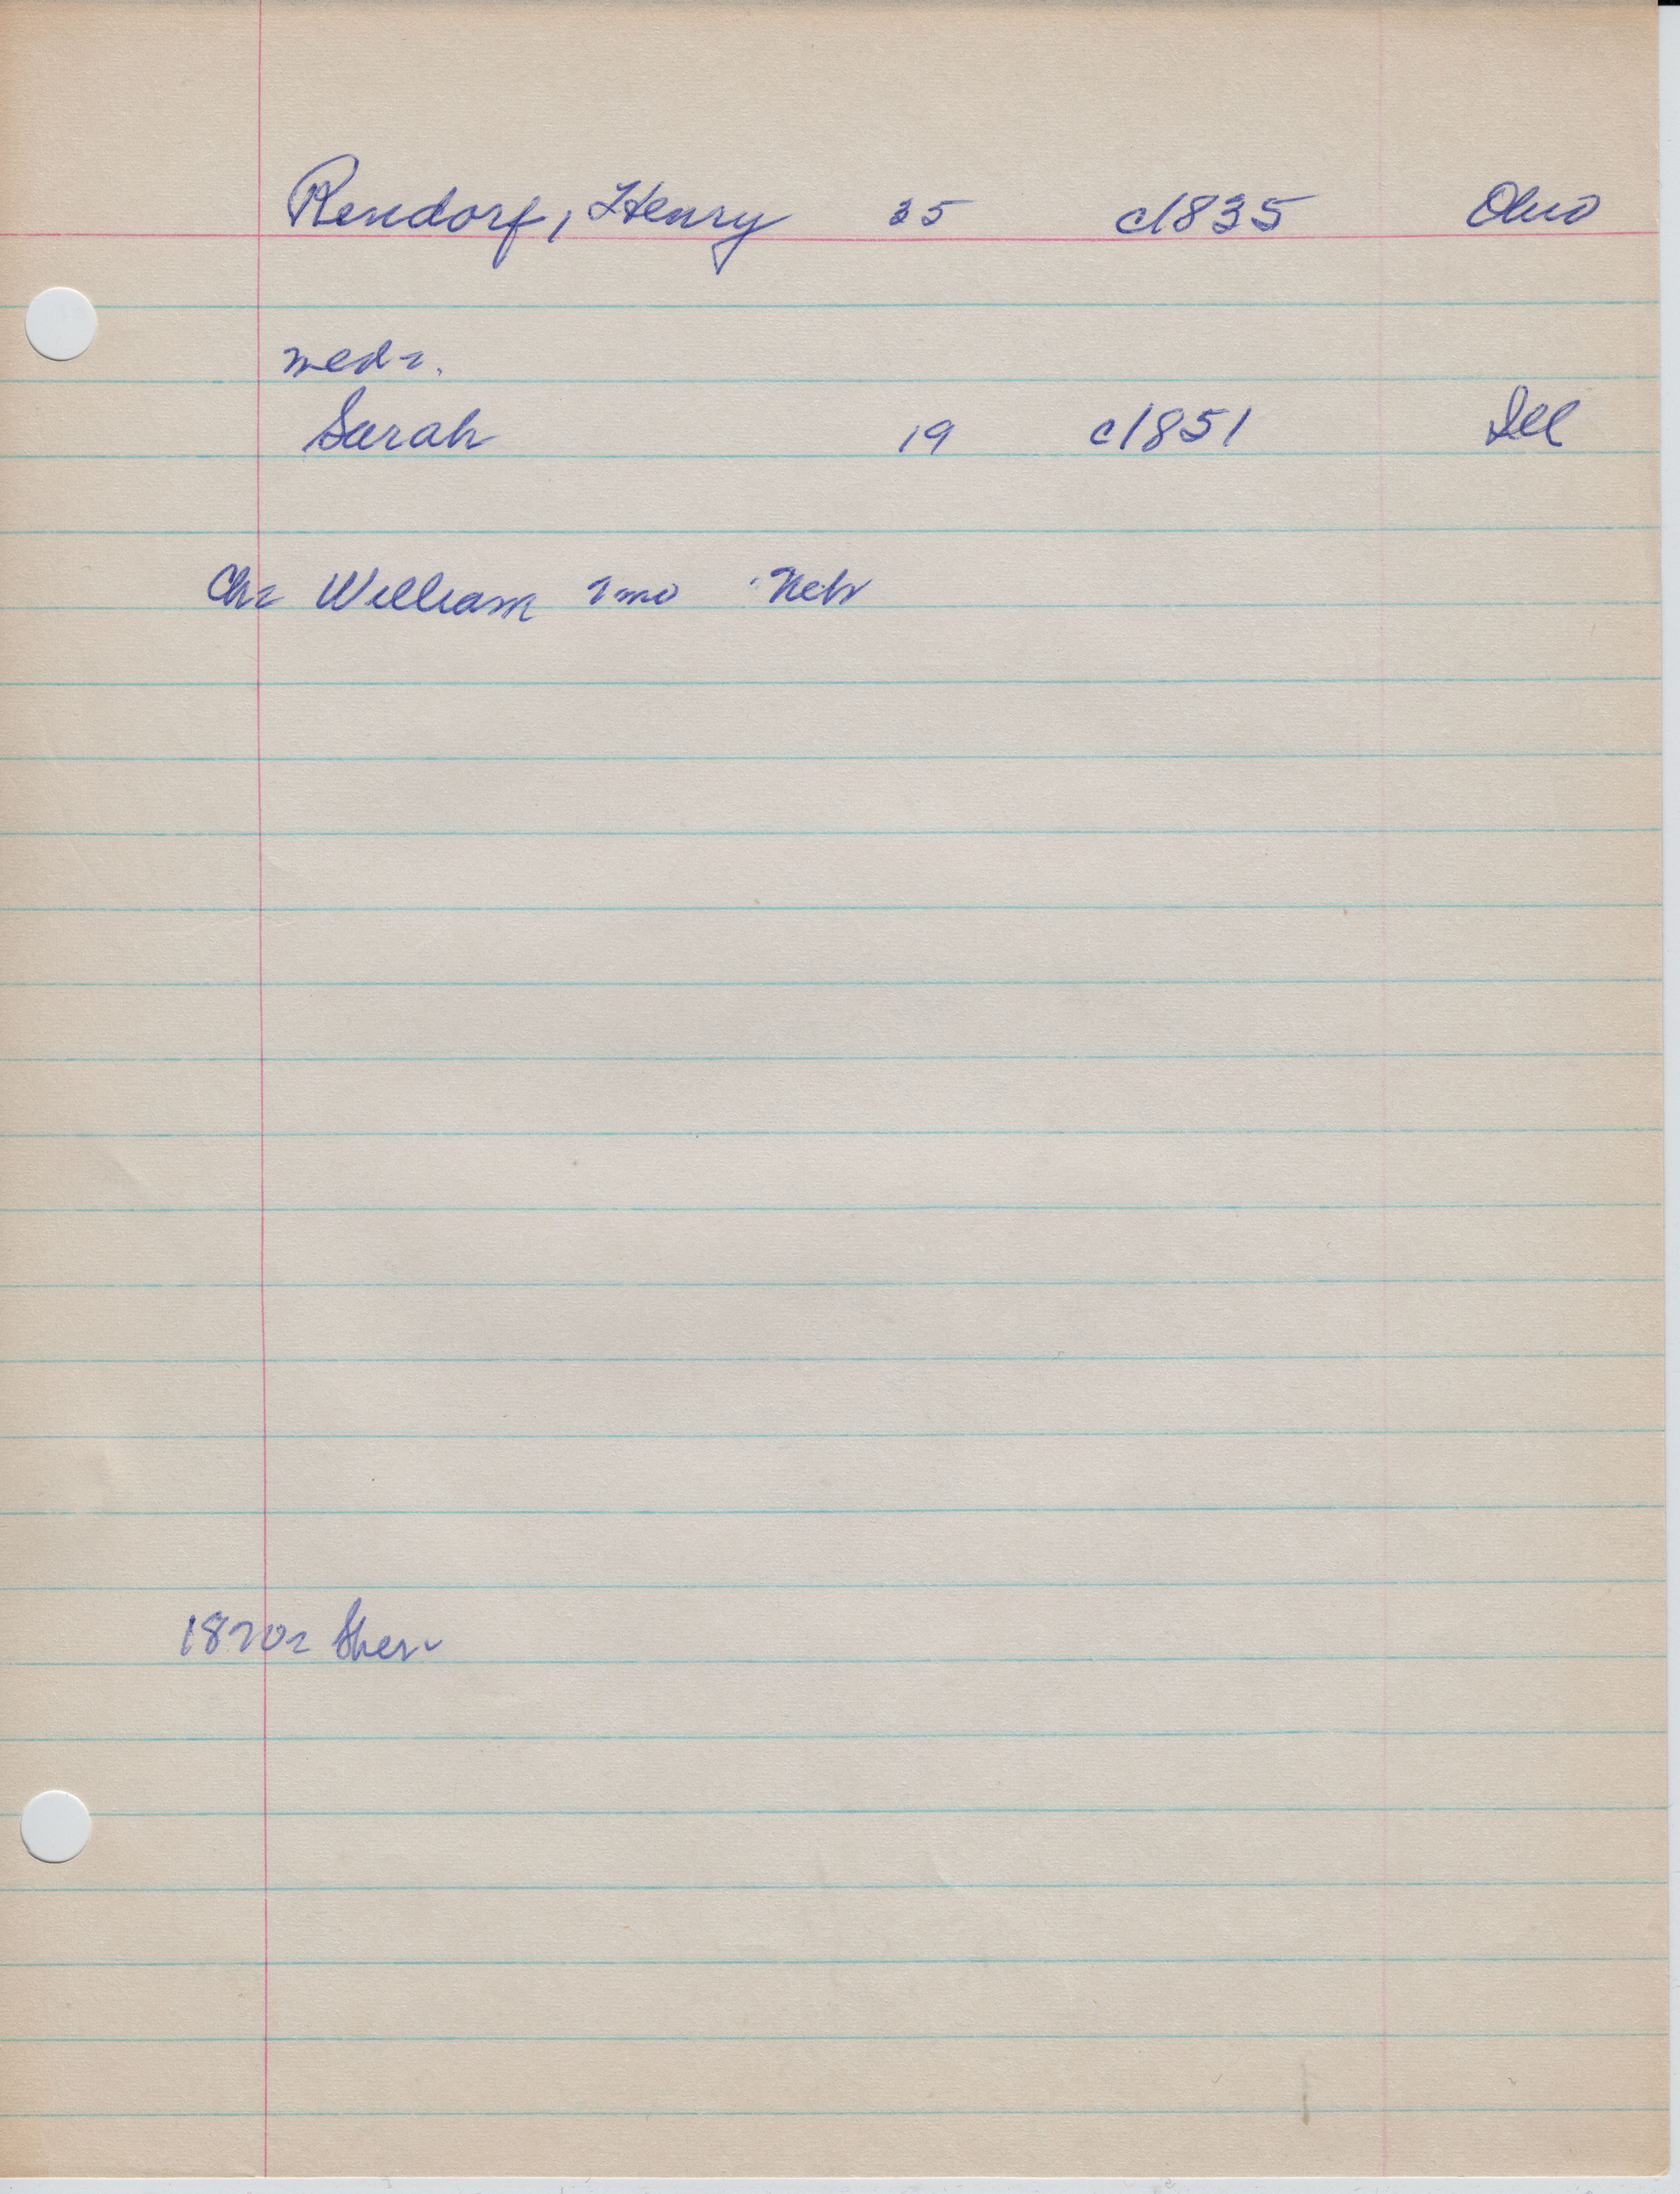 Rendorf, Henry 35 c1835 Ohio
med:
Sarah 19 c1851 Ill
Ch: William mo Neb
1870: Sher